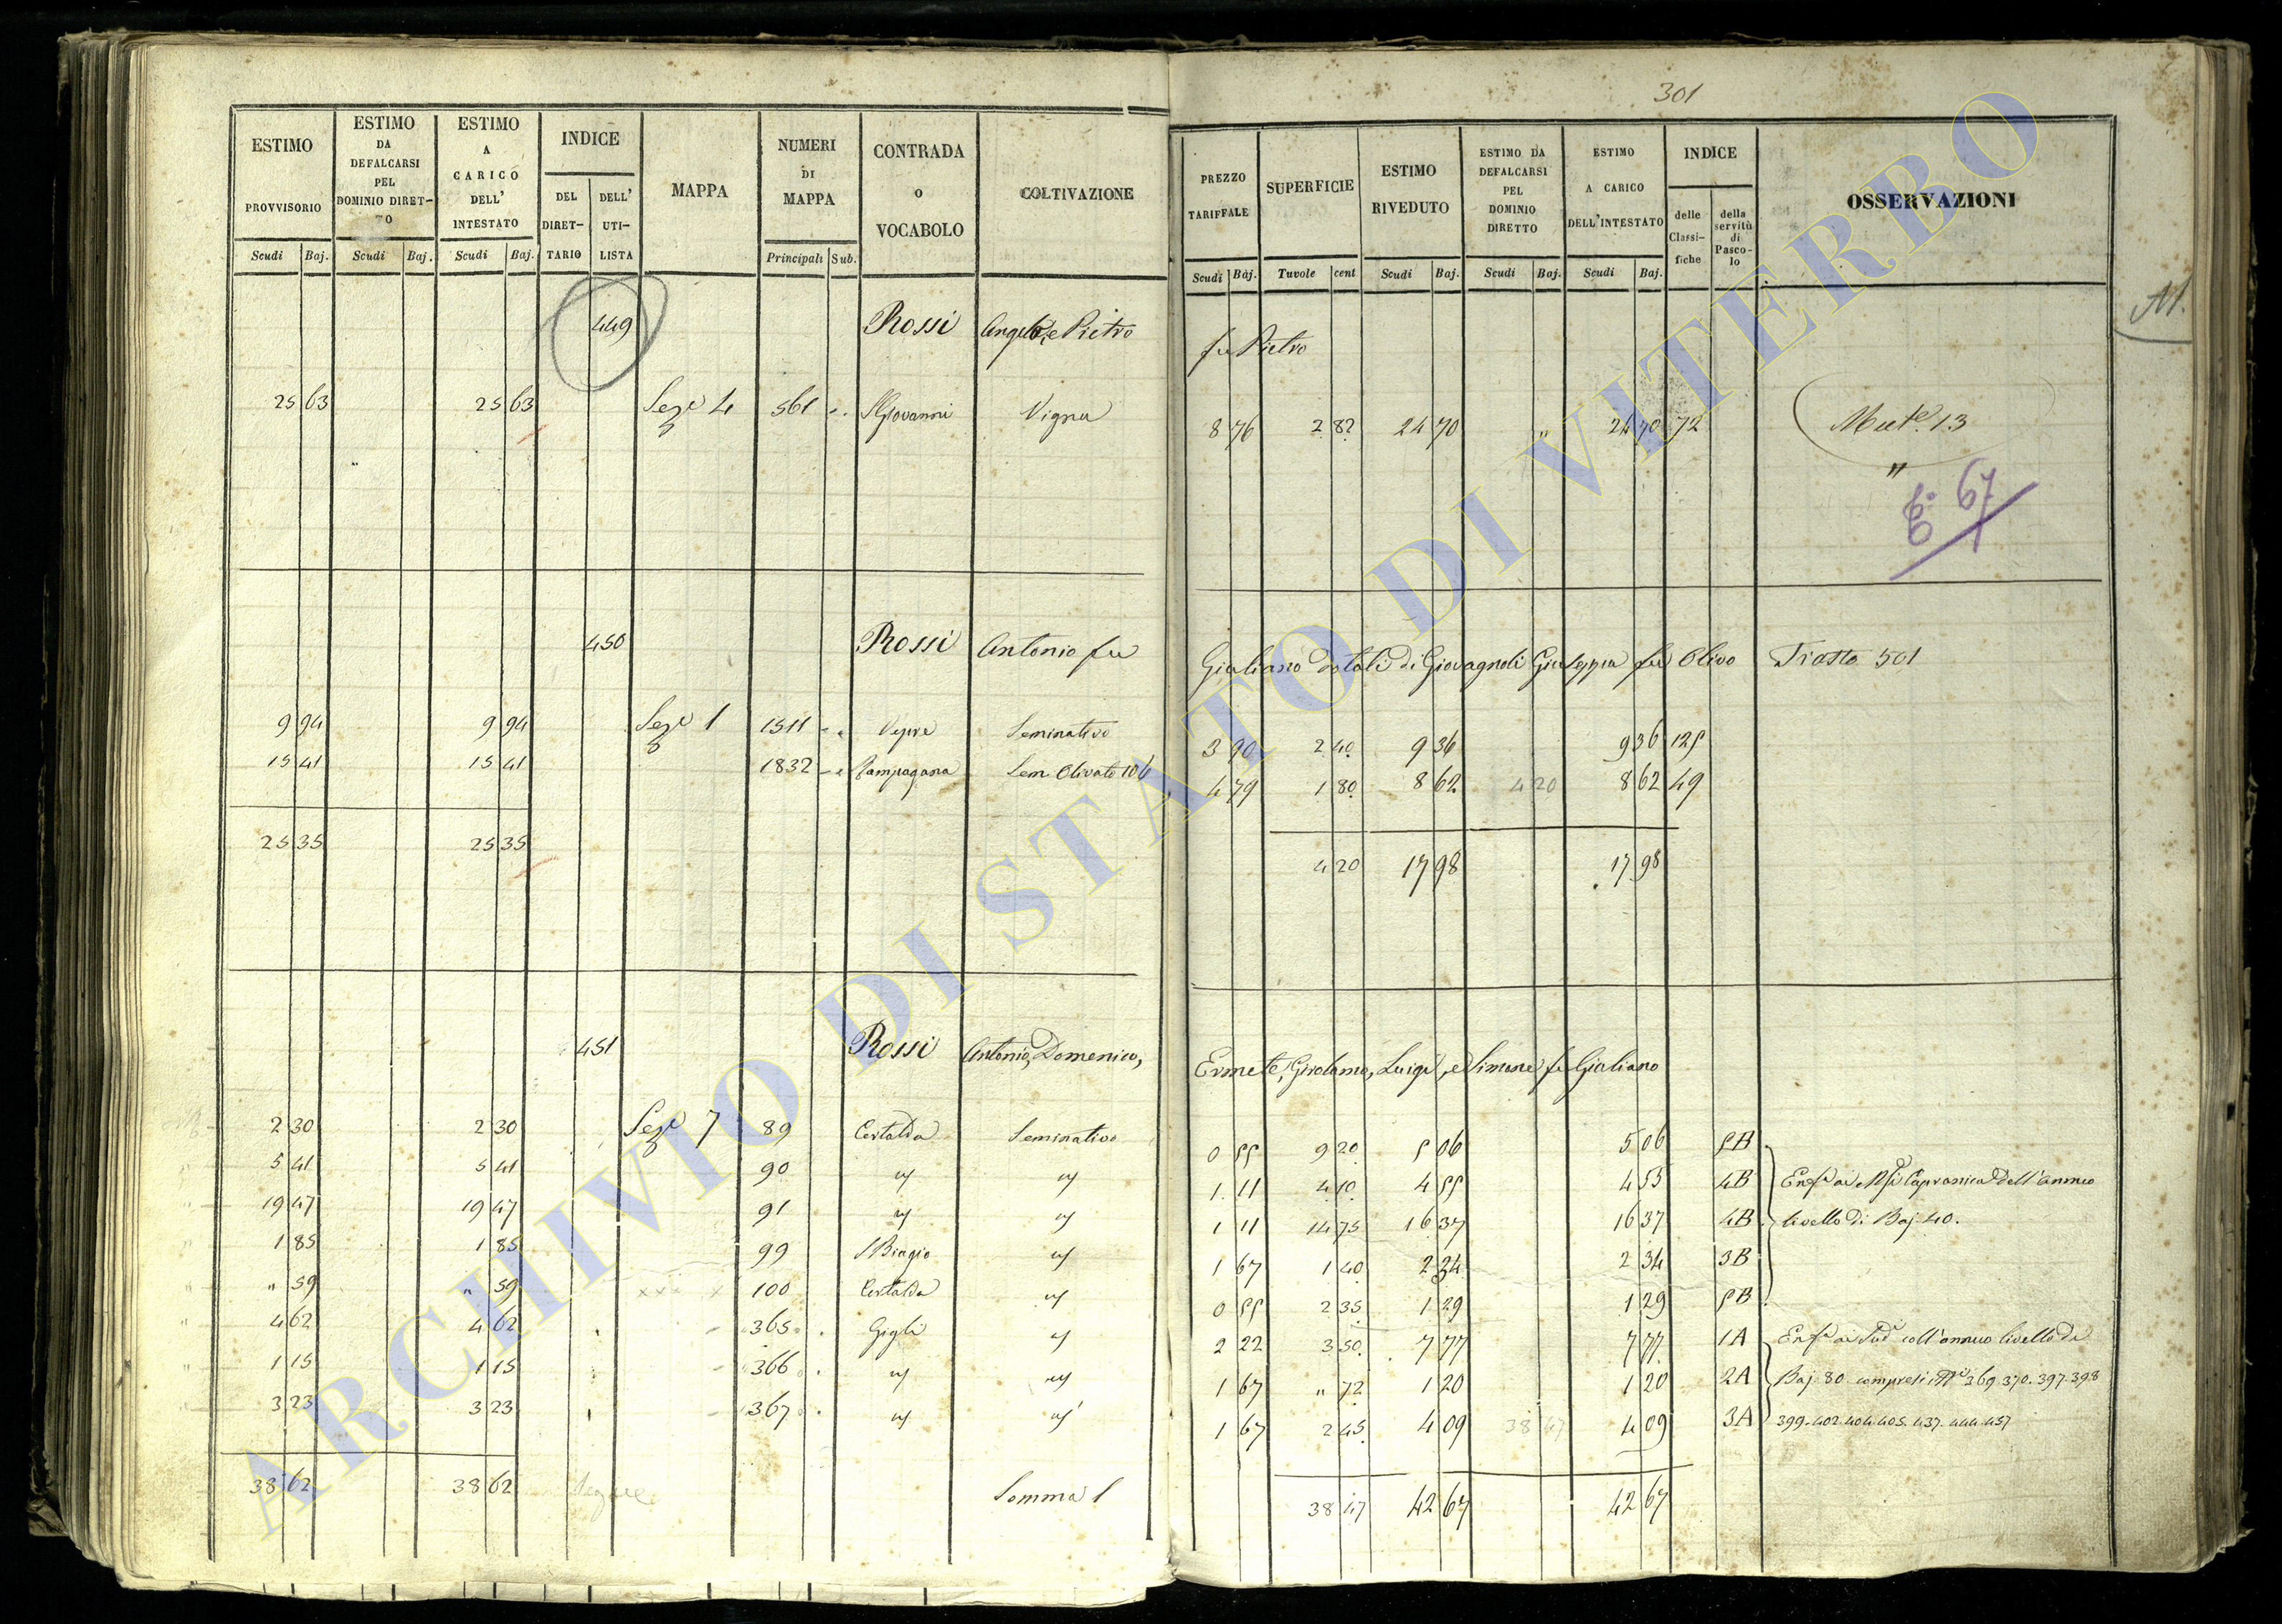 301
ESTIMO PROVVISORIO Scudi Baj.
ESTIMO DA DEFALCARSI PEL DOMINIO DIRETTO Scudi Baj.
ESTIMO A CARICO DELL' INTESTATO Scudi Baj.
INDICE DEL DIRETTARIO DELL' UTILISTA
MAPPA
NUMERI DI MAPPA Principali Sub.
CONTRADA o VOCABOLO
COLTIVAZIONE
PREZZO TARIFFALE Scudi Baj.
SUPERFICIE Tavole cent
ESTIMO RIVEDUTO Scudi Baj.
ESTIMO DA DEFALCARSI PEL DOMINIO DIRETTO Scudi Baj.
ESTIMO A CARICO DELL'INTESTATO Scudi Baj.
INDICE delle Classifiche della servitù di Pascolo
OSSERVAZIONI
449 Rossi Angelo, e Pietro fu Pietro
25 63 25 63 Sezе 4 561 S Giovanni Vigna 8 76 2 82 24 70 " 24 70 72 Mute 13
"
67
450 Rossi Antonio fu Giuliano dotali di Giovagnoli Giuseppa fu Olivo 501
9 94 9 94 Seze 1 1511 Vepre Seminativo 3 90 2 40 9 36 9 36 125
15 41 15 41 1832 Sem Olivato 106 4 79 1 80 8 62 4 20 8 62 49
25 35 25 35 4 20 17 98 17 98
451 Rossi Antonio, Domenico, Ermete, Girolamo, Luigi, e Simone fu Giuliano
2 30 2 30 Seze 7 89 Certalda Seminativo 0 55 9 20 5 06 5 06 5B
5 41 5 41 90 " " 1 11 4 10 4 55 4 55 4B Capranica dell'annuo
19 47 19 47 91 " " 1 11 14 75 16 37 16 37 4B livello di Baj 40.
1 85 1 85 99 S Biagio " 1 67 1 40 2 34 2 34 3B
" 59 " 59 100 Certalda " 0 55 2 35 1 29 1 29 5B
4 62 4 62 365 Gigli " 2 22 3 50 7 77 7 77 1A coll'annuo livello di
1 15 1 15 366 " " 1 67 " 72 1 20 1 20 2A Baj 80 compresi 369. 370. 397. 398
3 23 3 23 367 " " 1 67 2 45 4 09 38 47 4 09 3A 399. 402. 404. 405. 437. 444. 457
38 62 38 62 Segue Somma 1 38 47 42 67 42 67
ARCHIVIO DI STATO DI VITERBO